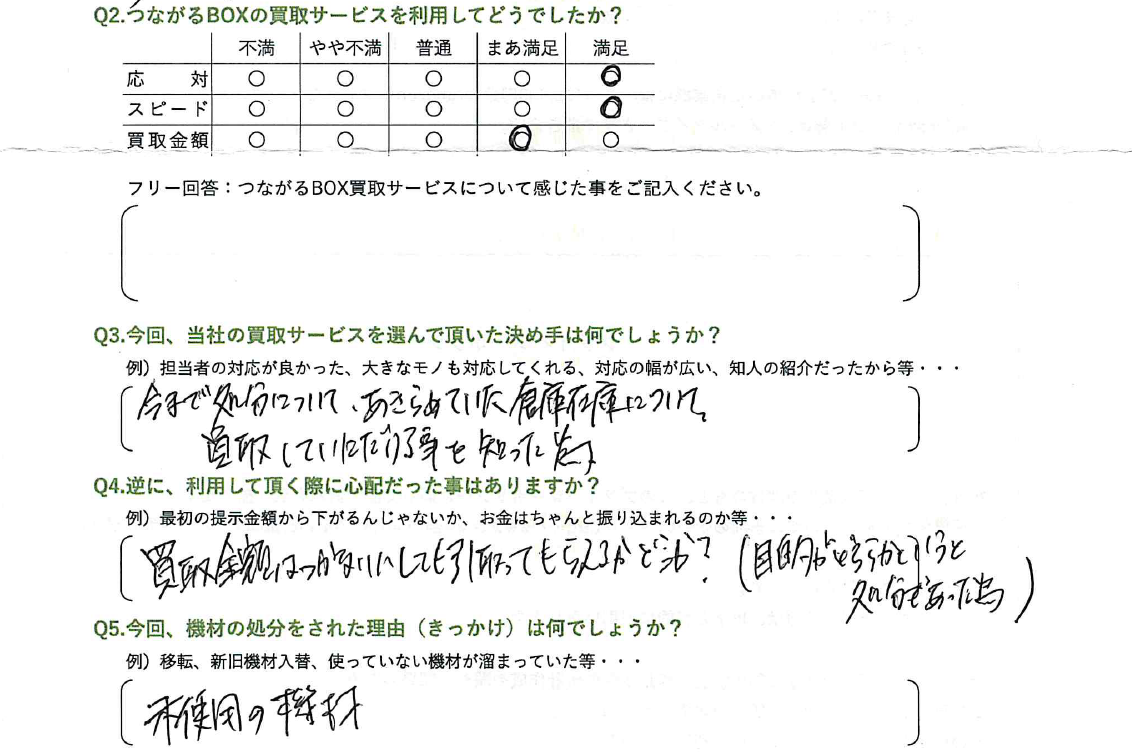 Q2.つながるBOXの買取サービスを利用してどうでしたか？
不満 やや不満 普通 まあ満足 満足
応対 ○ ○ ○ ○ ○
スピード ○ ○ ○ ○ ○
買取金額 ○ ○ ○ ○ ○
フリー回答：つながるBOX買取サービスについて感じた事をご記入ください。
Q3.今回、当社の買取サービスを選んで頂いた決め手は何でしょうか？
例）担当者の対応が良かった、大きなモノも対応してくれる、対応の幅が広い、知人の紹介だったから等・・・
今まで処分について、あきらめていた倉庫在庫について、
買取していただける事を知った為
Q4.逆に、利用して頂く際に心配だった事はありますか？
例）最初の提示金額から下がるんじゃないか、お金はちゃんと振り込まれるのか等・・・
買取金額はつかないにしても引取ってもらえるかどうか？（目的がどちらかというと
処分であった為）
Q5.今回、機材の処分をされた理由（きっかけ）は何でしょうか？
例）移転、新旧機材入替、使っていない機材が溜まっていた等・・・
未使用の機材